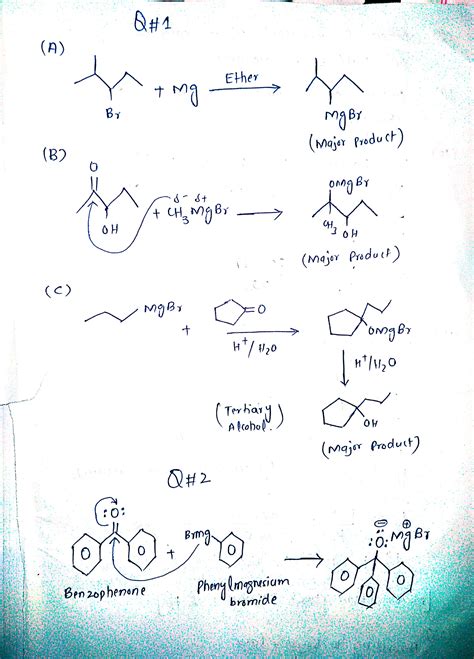 Q#1
(A)
Br
+ Mg
Ether
MgBr
(Major Product)
(B)
O
OH
δ- δ+
+ CH3MgBr
OMgBr
CH3
OH
(Major Product)
(C)
MgBr
+
O
H+/H2O
OMgBr
H+/H2O
(Tertiary
Alcohol.)
OH
(Major Product)
Q#2
:O:
Benzophenone
+
BrMg
Phenylmagnesium
bromide
⊖ ⊕
:O: MgBr